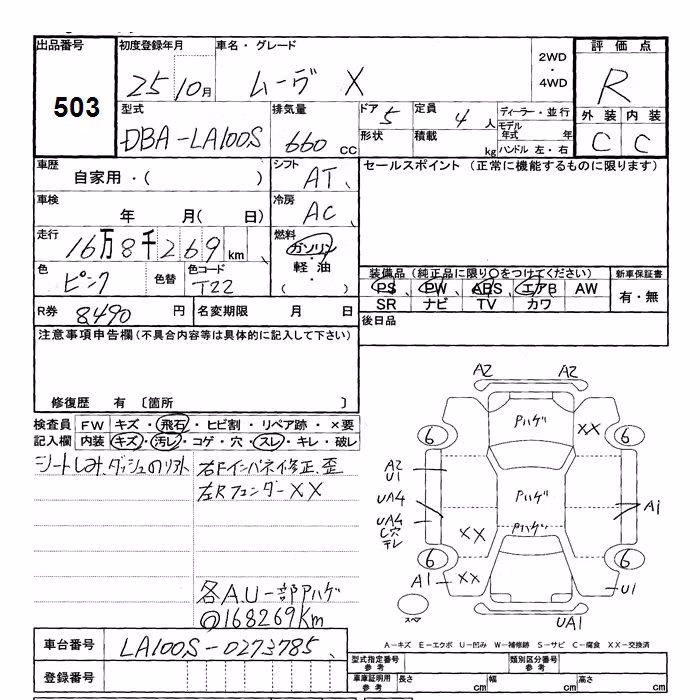 出品番号
503
初度登録年月
25 10月
車名・グレード
ムーヴ X
2WD
・
4WD
評価点
R
外装 内装
C C
型式
DBA-LA100S
排気量
660 CC
ドア 5
形状
定員 4 人
積載 kg
ディーラー・並行
モデル年式 年
ハンドル 左・右
車歴
自家用・( )
シフト
AT、
セールスポイント (正常に機能するものに限ります)
車検
年 月( 日)
冷房
AC、
走行
16万8千269km、
燃料
ガソリン
・
軽油
・
( )
色
ピンク
色替
色コード
T22
装備品(純正品に限り○をつけてください)
PS、 PW、 ABS、 エアB AW
SR ナビ TV カワ
新車保証書
有・無
R券 8490 円
名変期限 月 日
後日品
注意事項申告欄(不具合内容等は具体的に記入して下さい)
修復歴 有 〔箇所 〕
検査員記入欄
FW キズ・飛石・ヒビ割・リペア跡・×要
内装 キズ・汚レ・コゲ・穴・スレ・キレ・破レ
シートしみ、ダッシュのり跡
右Fインパネ修正、歪
左Rフェンダー××
各A.U一部Pハゲ
168269Km
A2 A2
Pハゲ
××
6 6
A2
U1
Pハゲ
UA4
A1
UA4
C穴
テレ
××
Pハゲ
6 6
A1 ××
U1
スペア
UA1
A-キズ E-エクボ U-凹み W-補修跡 S-サビ C-腐食 XX-交換済
車台番号 LA100S-0273785、
登録番号
型式指定番号
参考
類別区分番号
参考
車庫証明用
参考
長さ cm 幅 cm 高さ cm